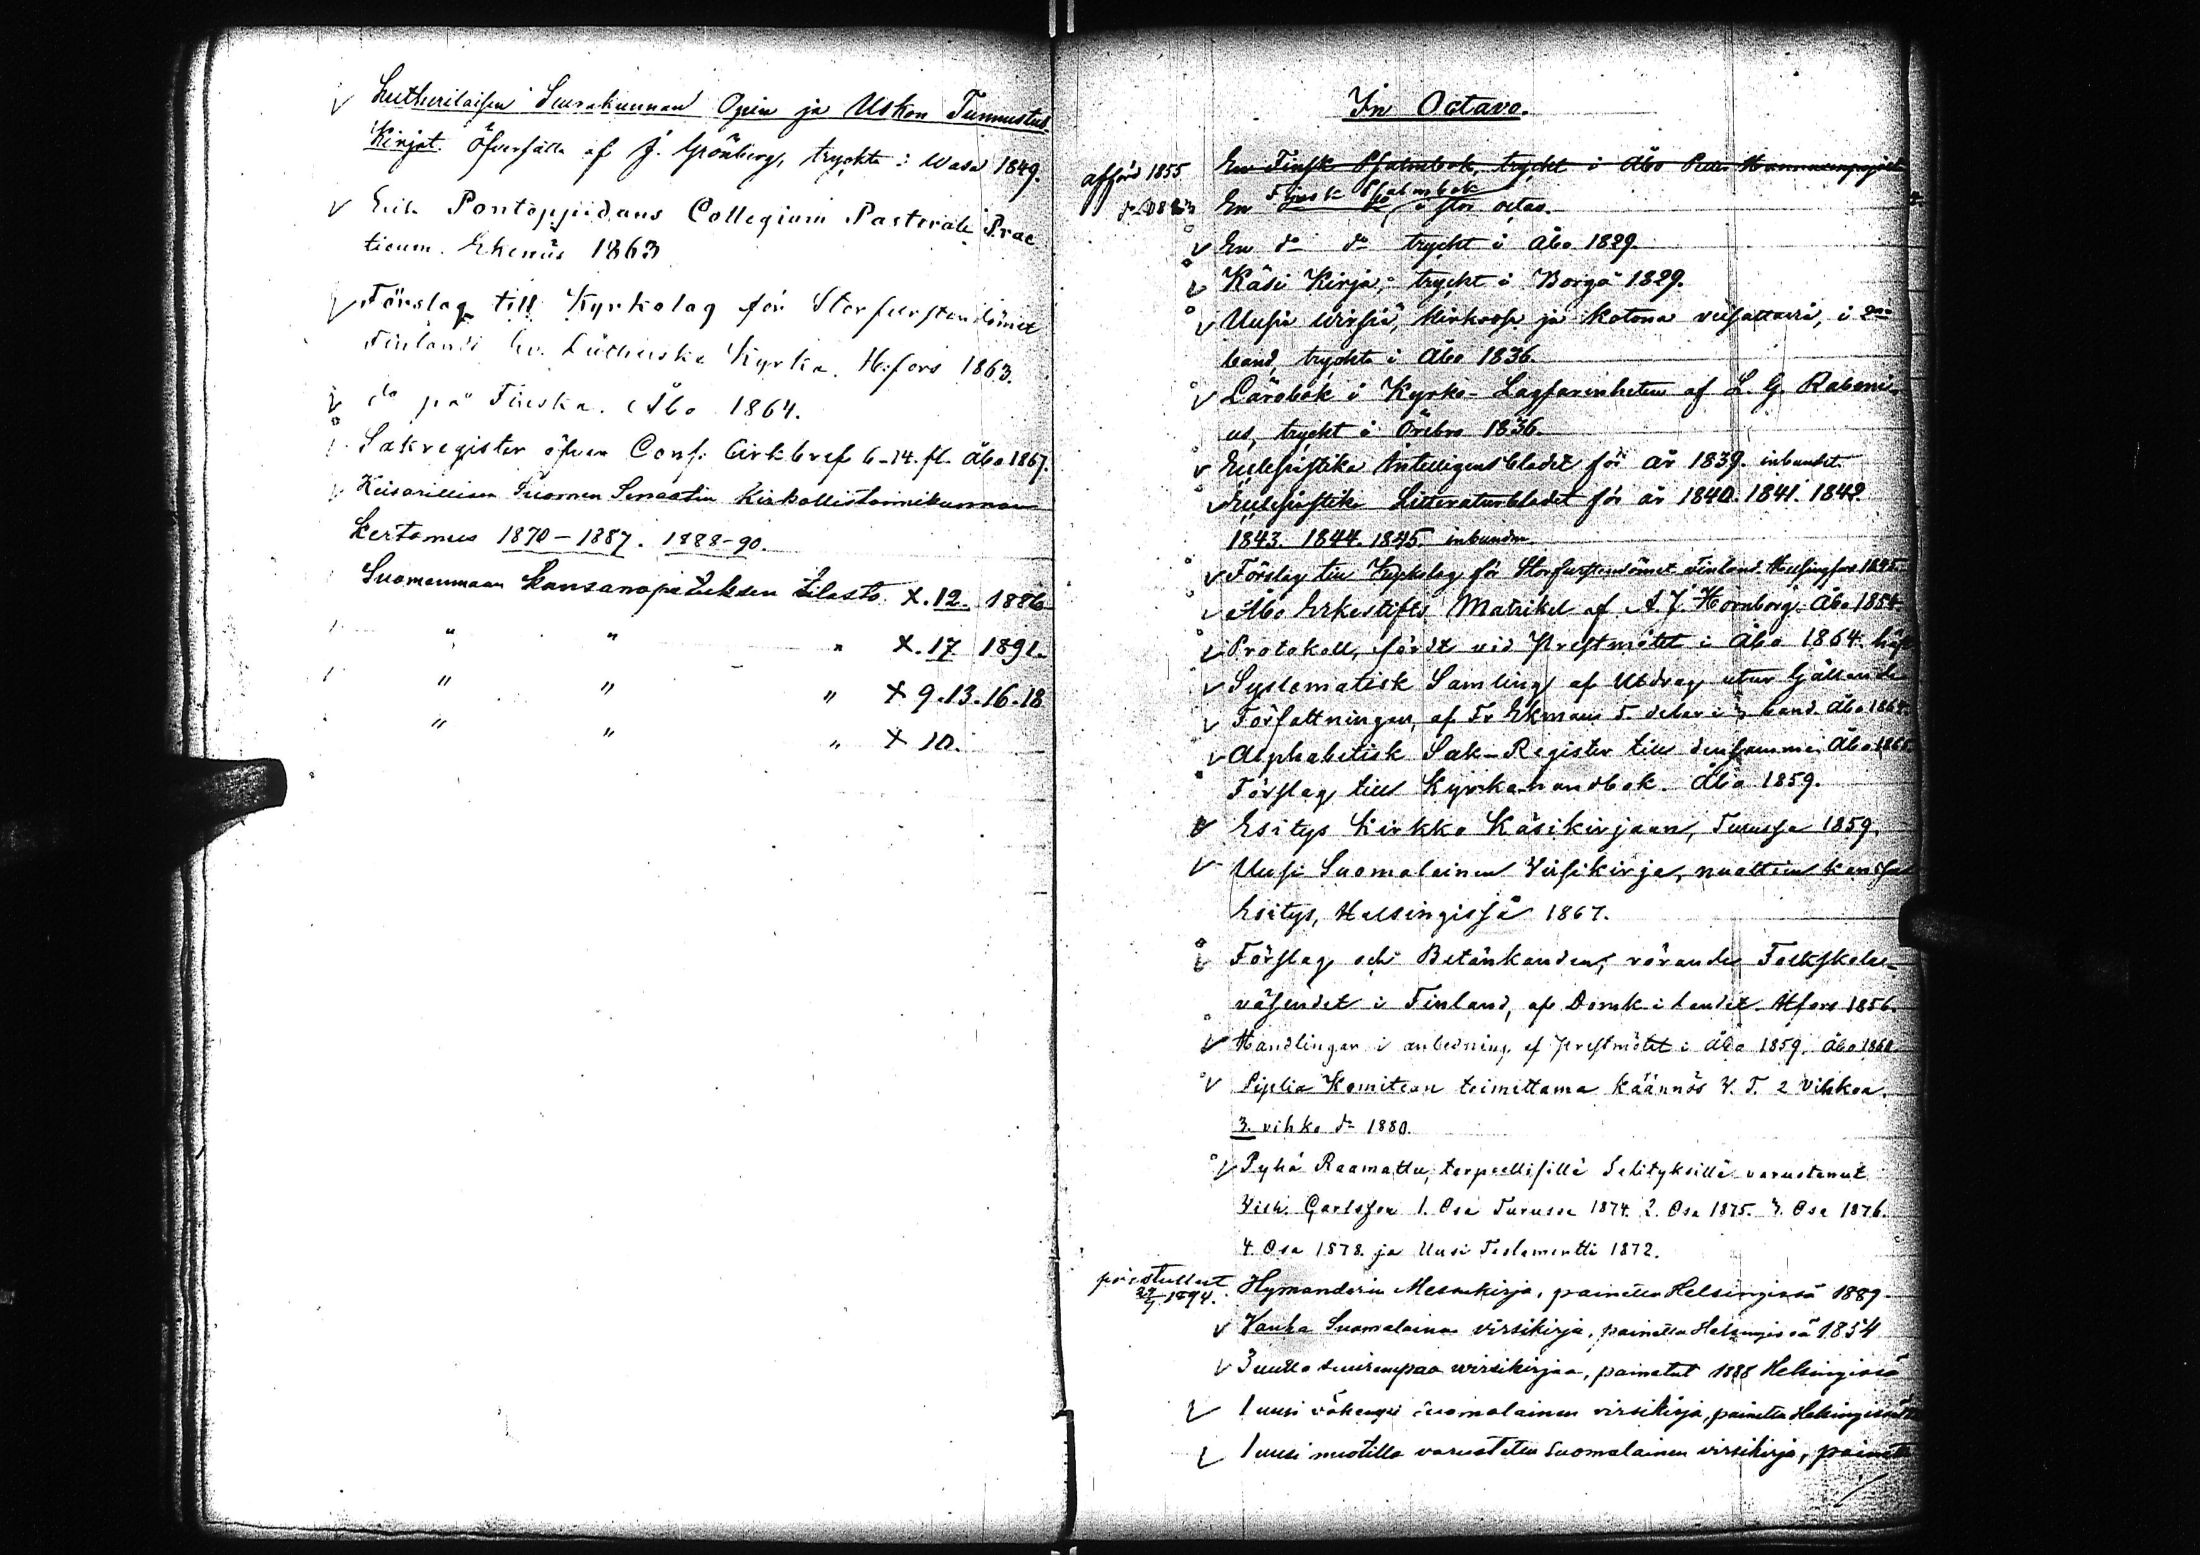 Lutherilaisen Seurakunnan Opin ja Uskon Tunnustus
Kirjat öfversatta af J. Grönberg, tryckta i Wasa 1849.
Erik Pontoppidans Collegium Pastorale Prac
ticum. Ekenäs 1863
Förslag till Kyrkolag för Storfurstendömet
Finlands Ev. Lutherska Kyrka. H:fors 1863.
do på Finska. Åbo 1864.
Sakregister öfver Cons. Cirkbref 6-14. fl. Åbo 1867.
Keisarillisen Suomen Senaatin Kirkollistoimikunnan
Kertomus 1870-1887. 1888-90.
Suomenmaan Kansanopetuksen tilasto X. 12. 1886
" " " X. 17 1891.
" " " X 9.13.16.18
" " " X 10.
In Octavo.
afförd 1855 En Finsk Psalmbok, tryckt i Åbo
En Finsk Psalmbok i stor octav.
En do do tryckt i Åbo 1829.
Käsi Kirja, tryckt i Borgå 1829.
Uusia Wirsiä, Kirkossa ja kotona veisattavia, i 2ne
band, tryckta i Åbo 1836.
Lärobok i Kyrko-Lagfarenheten af L. G. Rabeni
us, tryckt i Örebro 1836.
Ecclesiastika Intelligensbladet för år 1839. inbundet.
Ecclesiastika Litteraturbladet för år 1840. 1841. 1842
1843. 1844. 1845. inbundna
Förslag till Kyrkolag för Storfurstendömet Finland. Helsingfors 1845.
Åbo Erkestifts Matrikel af A. J. Hornborg. Åbo 1854
Protokoll, fördt vid Prestmötet i Åbo 1864.
Systematisk Samling af Utdrag utur Gällande
Författningar, af Fr. Ekman 5. delar i 3 band. Åbo 1864.
Alphabetisk Sak-Register till densamma Åbo
Förslag till Kyrkohandbok. Åbo 1859.
Esitys Kirkko Käsikirjaan, Turussa 1859.
Uusi Suomalainen Virsikirja, nuottein kanssa
Esitys, Helsingissä 1867.
Förslag och Betänkanden, rörande Folkskole-
väsendet i Finland, af Domk: i landet. H:fors 1856.
Handlingar i anledning af prestmötet i Åbo 1859. Åbo 1860
Piplia Komitean toimittama käännös V. T. 2 vihkoa.
3. vihko do 1880.
Pyhä Raamattu, tarpeellisillä Selityksillä varustanut
Vilh. Carlsson 1. Osa Turussa 1874. 2. Osa 1875. 3. Osa 1876.
4. Osa 1878. ja Uusi Testamentti 1872.
poistullut 1894. Hymanderin Messukirja, painettu Helsingissä 1889
Vanha Suomalainen virsikirja, painettu Helsingissä 1854
3 uutta suurempaa virsikirjaa, painetut 1888 Helsingissä
1 uusi vähempi suomalainen virsikirja, painettu Helsingissä
1 uusi nuotilla varustettu Suomalainen virsikirja,